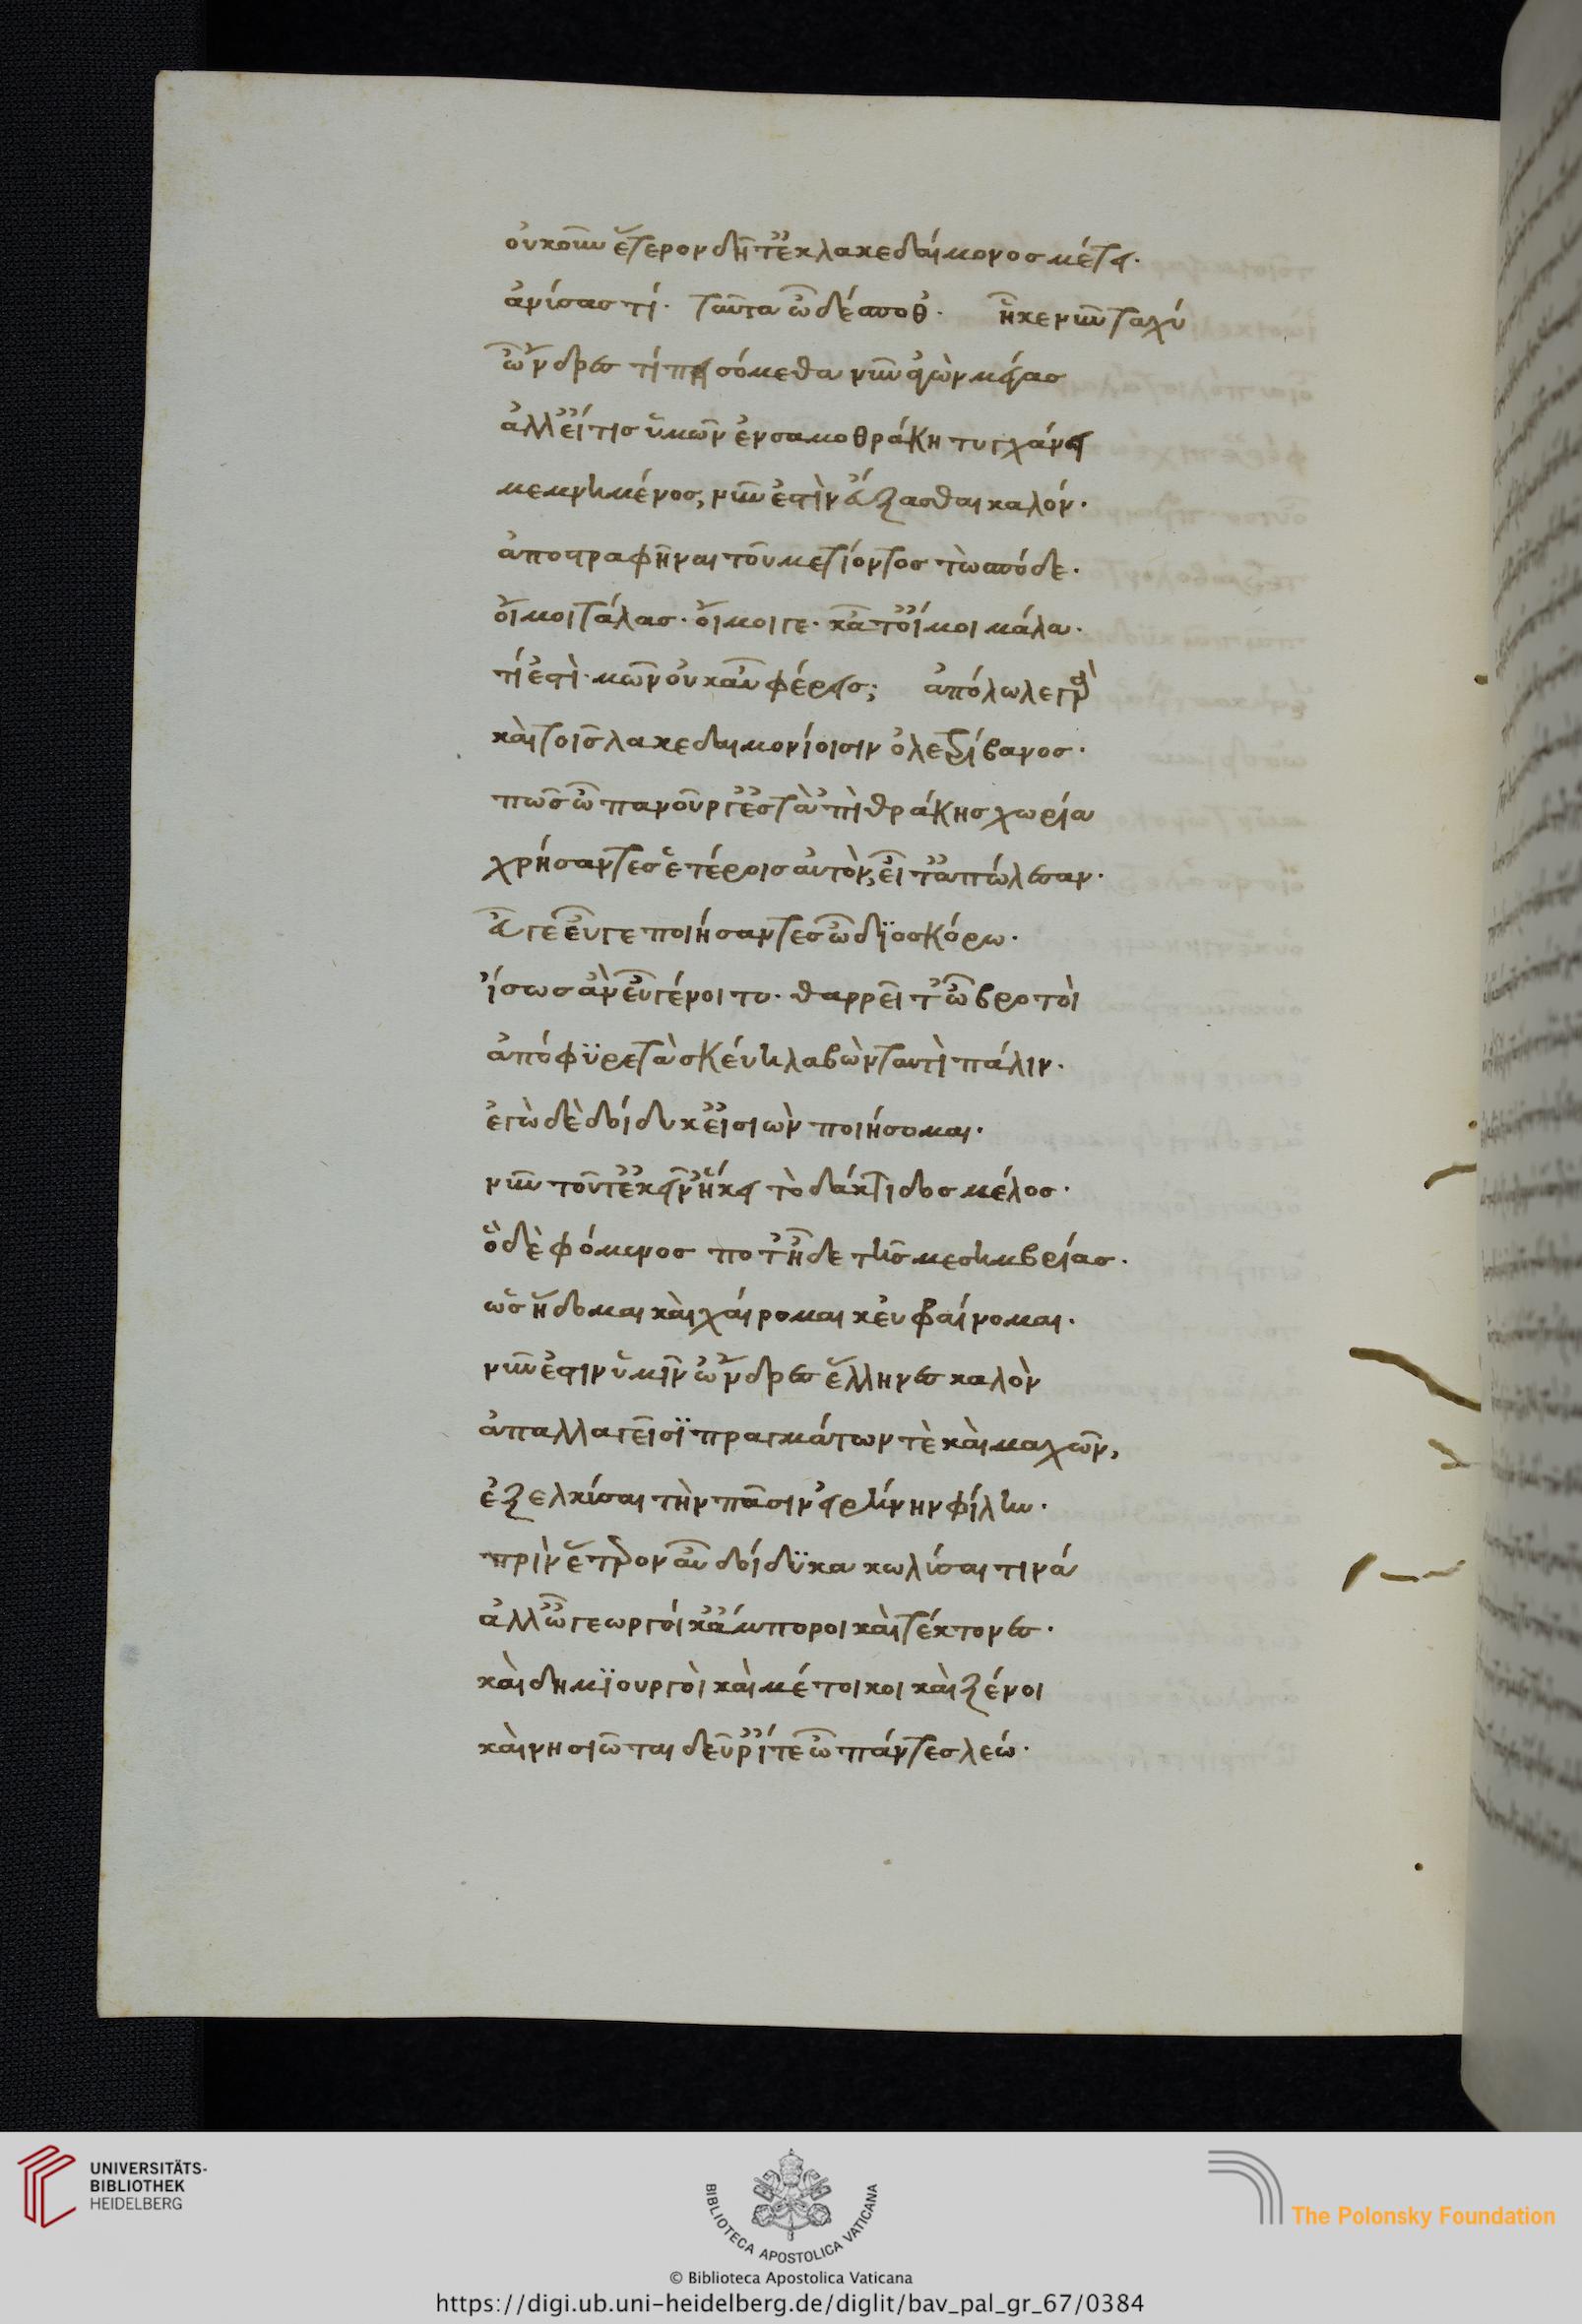 οὐκοῦν ἕτερον δῆτ' ἐκ λακεδαίμονος μέτει.
ἀνύσας τί. ταῦτα ὦ δέσποθ'. ἧκε νῦν ταχύ
ὦ 'νδρες τί πεισόμεθα νῦν ἀγὼν μέγας
ἀλλ' εἴ τις ὑμῶν ἐν σαμοθράκη τυγχάνει
μεμνημένος, νῦν ἐστὶν εὔξασθαι καλόν.
ἀποστραφῆναι τοῦ μετιόντος τὼ πόδε.
οἴμοι τάλας. οἴμοι γε. κᾆτ' οἴμοι μάλα.
τί ἐστὶ. μῶν οὐκ αὖ φέρεις; ἀπόλωλε γὰρ
καὶ τοῖς λακεδαιμονίοισιν ὁλετρίβανος.
πῶς ὦ πανοῦργ' ἐς τὰ 'πὶ θράκης χωρία
χρήσαντες ἑτέροις αὐτὸν, εἶτ' ἀπώλεσαν.
εὖ γέ εὖ γε ποιήσαντες ὦ δϊοσκόρω.
ἴσως ἂν εὖ γένοιτο. θαρρεῖτ' ὦ βροτοὶ
ἀπόφϋρε τὰ σκεύη λαβὼν ταυτὶ πάλιν.
ἐγὼ δὲ δοίδυκ' εἰσιὼν ποιήσομαι.
νῦν τοῦτ' ἐκεῖν' ἥκει τὸ δάκτιδος μέλος.
ὃ δεφόμενος ποτ' ᾖδε τῆς μεσημβρίας.
ὡς ἥδομαι καὶ χαίρομαι κεὐφραίνομαι.
νῦν ἐστιν ὑμῖν ὦ 'νδρες ἕλληνες καλὸν
ἀπαλλαγεῖσϊ πραγμάτων τὲ καὶ μαχῶν,
ἐξελκύσαι τὴν πᾶσιν εἰρήνην φίλην.
πρὶν ἕτερον αὖ δοίδϋκα κωλύσαι τινά
ἀλλ' ὦ γεωργοί κἄμποροι καὶ τέκτονες.
καὶ δημϊουργοὶ καὶ μέτοικοι καὶ ξένοι
καὶ νησιῶται δεῦρ' ἴτε ὦ πάντες λεώ.
UNIVERSITÄTS-
BIBLIOTHEK
HEIDELBERG
BIBLIOTECA APOSTOLICA VATICANA
The Polonsky Foundation
© Biblioteca Apostolica Vaticana
https://digi.ub.uni-heidelberg.de/diglit/bav_pal_gr_67/0384